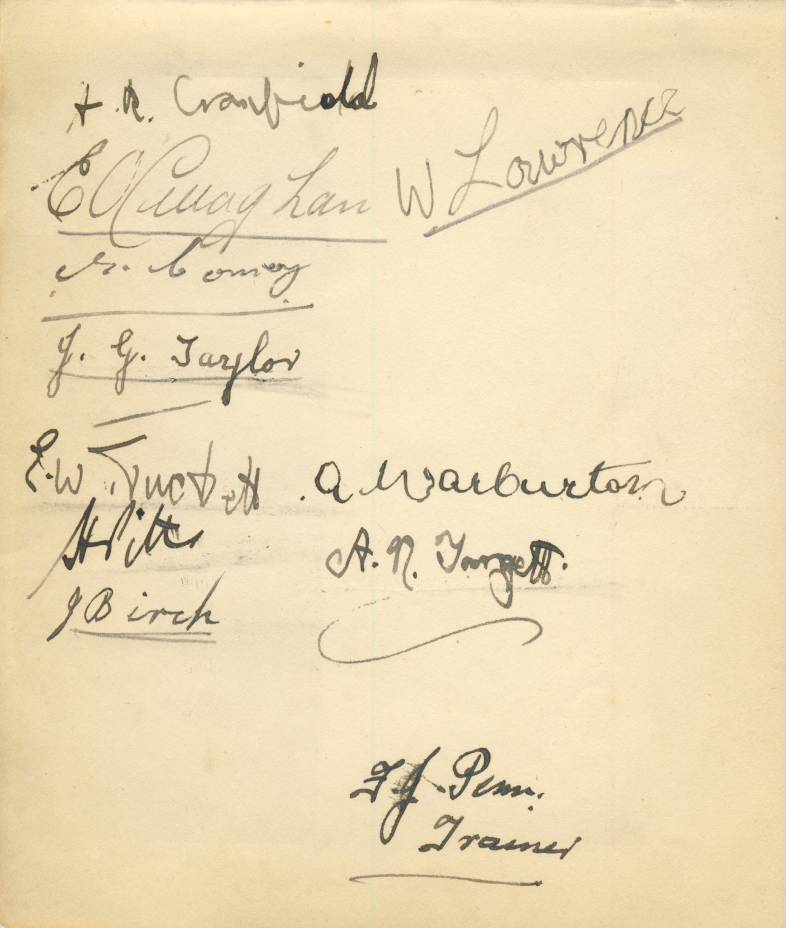 H. R. Cranfield
E O'Callaghan W Lawrence
J. G. Taylor
E. W. Tuckett A Warburton
H Pitts
A. N. Turgett.
J Birch
F J. Penn.
Trainer